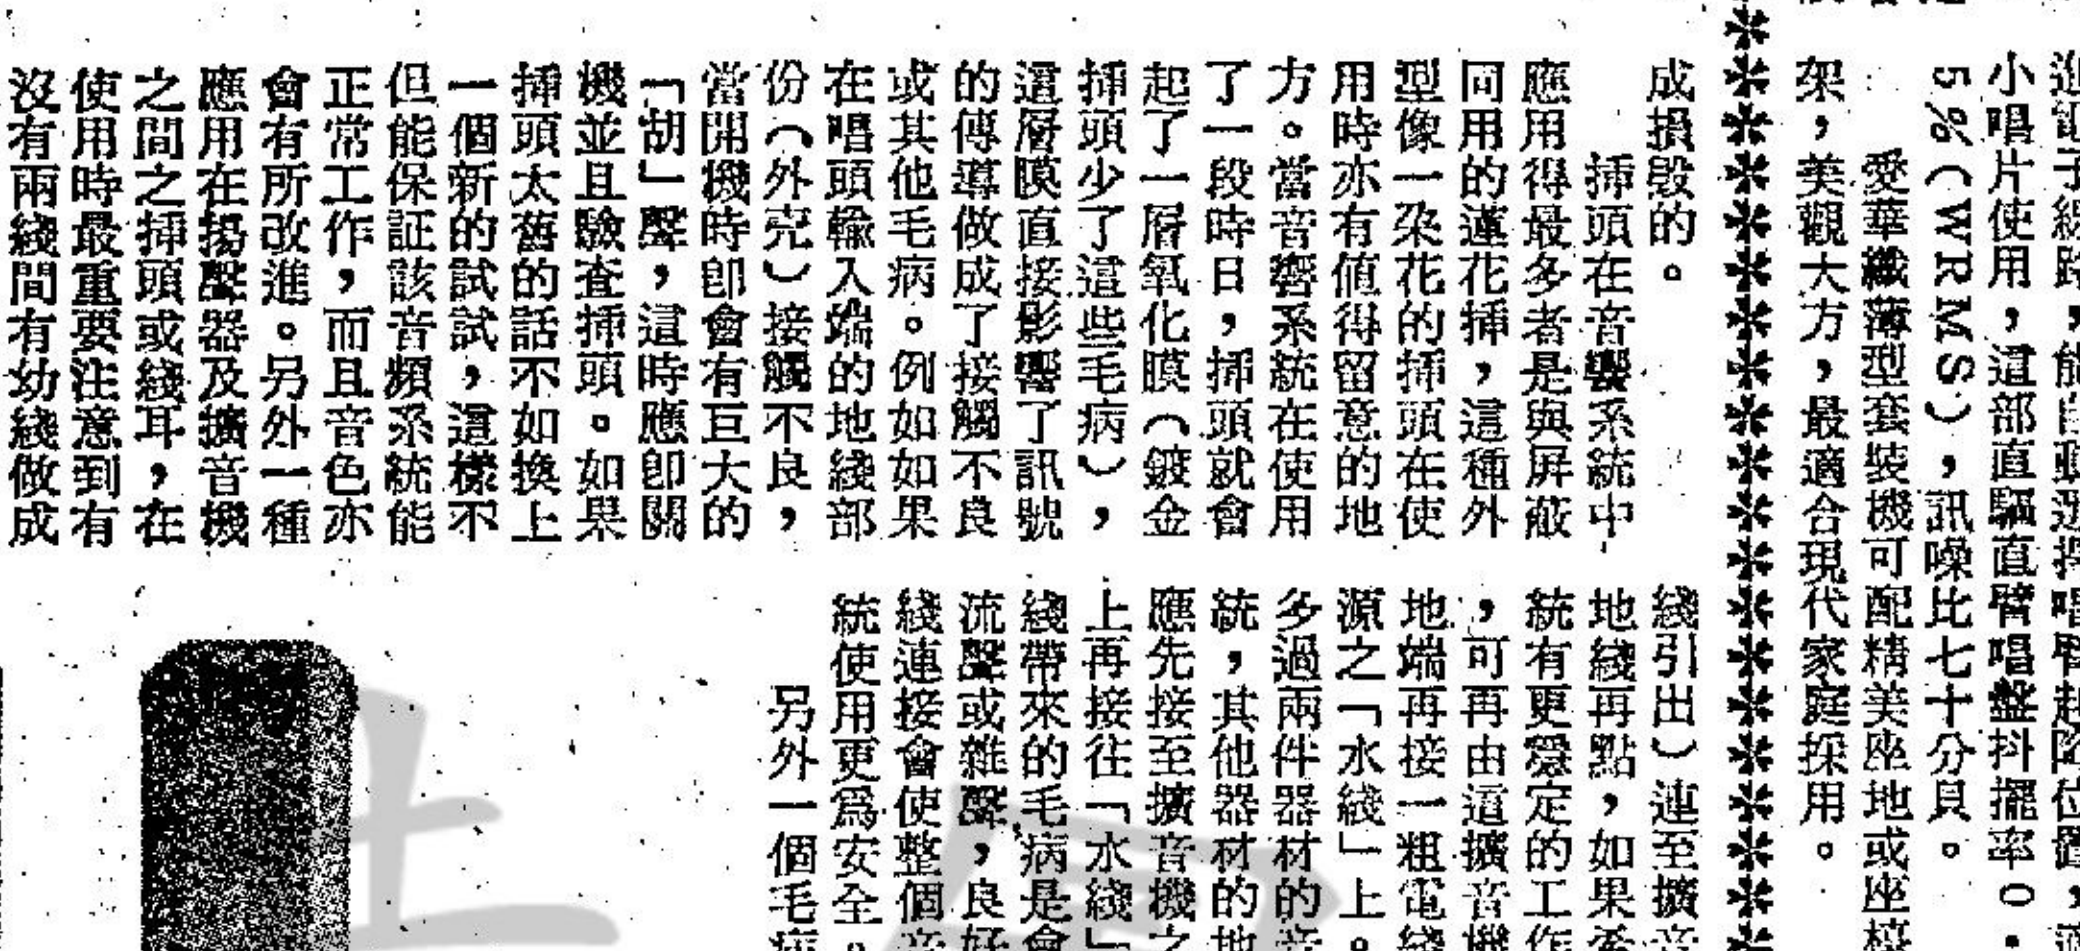 小唱片使用，這部直驅直臂唱盤抖擺率0．
5%（WRMS），訊噪比七十分貝。
愛華纖薄型套裝機可配精美座地或座
架，美觀大方，最適合現代家庭採用。
成損毀的。
揷頭在音響系統中
應用得最多者是與屏蔽
同用的蓮花揷，這種外
型像一朶花的揷頭在使
用時亦有値得留意的地
方。當音響系統在使用
了一段時日，揷頭就會
起了一層氧化膜（鍍金
揷頭少了這些毛病），
這層膜直接影響了訊號
的傳導做成了接觸不良
或其他毛病。例如如果
在唱頭輸入端的地綫部
份（外壳）接觸不良，
當開機時卽會有巨大的
「胡」聲，這時應卽關
機並且驗查揷頭。如果
揷頭太舊的話不如換上
一個新的試試，這樣不
但能保証該音頻系統能
正常工作，而且音色亦
會有所改進。另外一種
應用在揚聲器及擴音機
之間之揷頭或綫耳，在
使用時最重要注意到有
沒有兩綫間有幼綫做成
綫引出）連至擴音
地綫再點，如果希
統有更穩定的工作
，可再由這擴音機
地端再接一粗電綫
源之「水綫」上。
多過兩件器材的音
統，其他器材的地
應先接至擴音機之
上再接往「水綫」
綫帶來的毛病是會
流聲或雜聲，良好
綫連接會使整個音
統使用更爲安全。
另外一個毛病